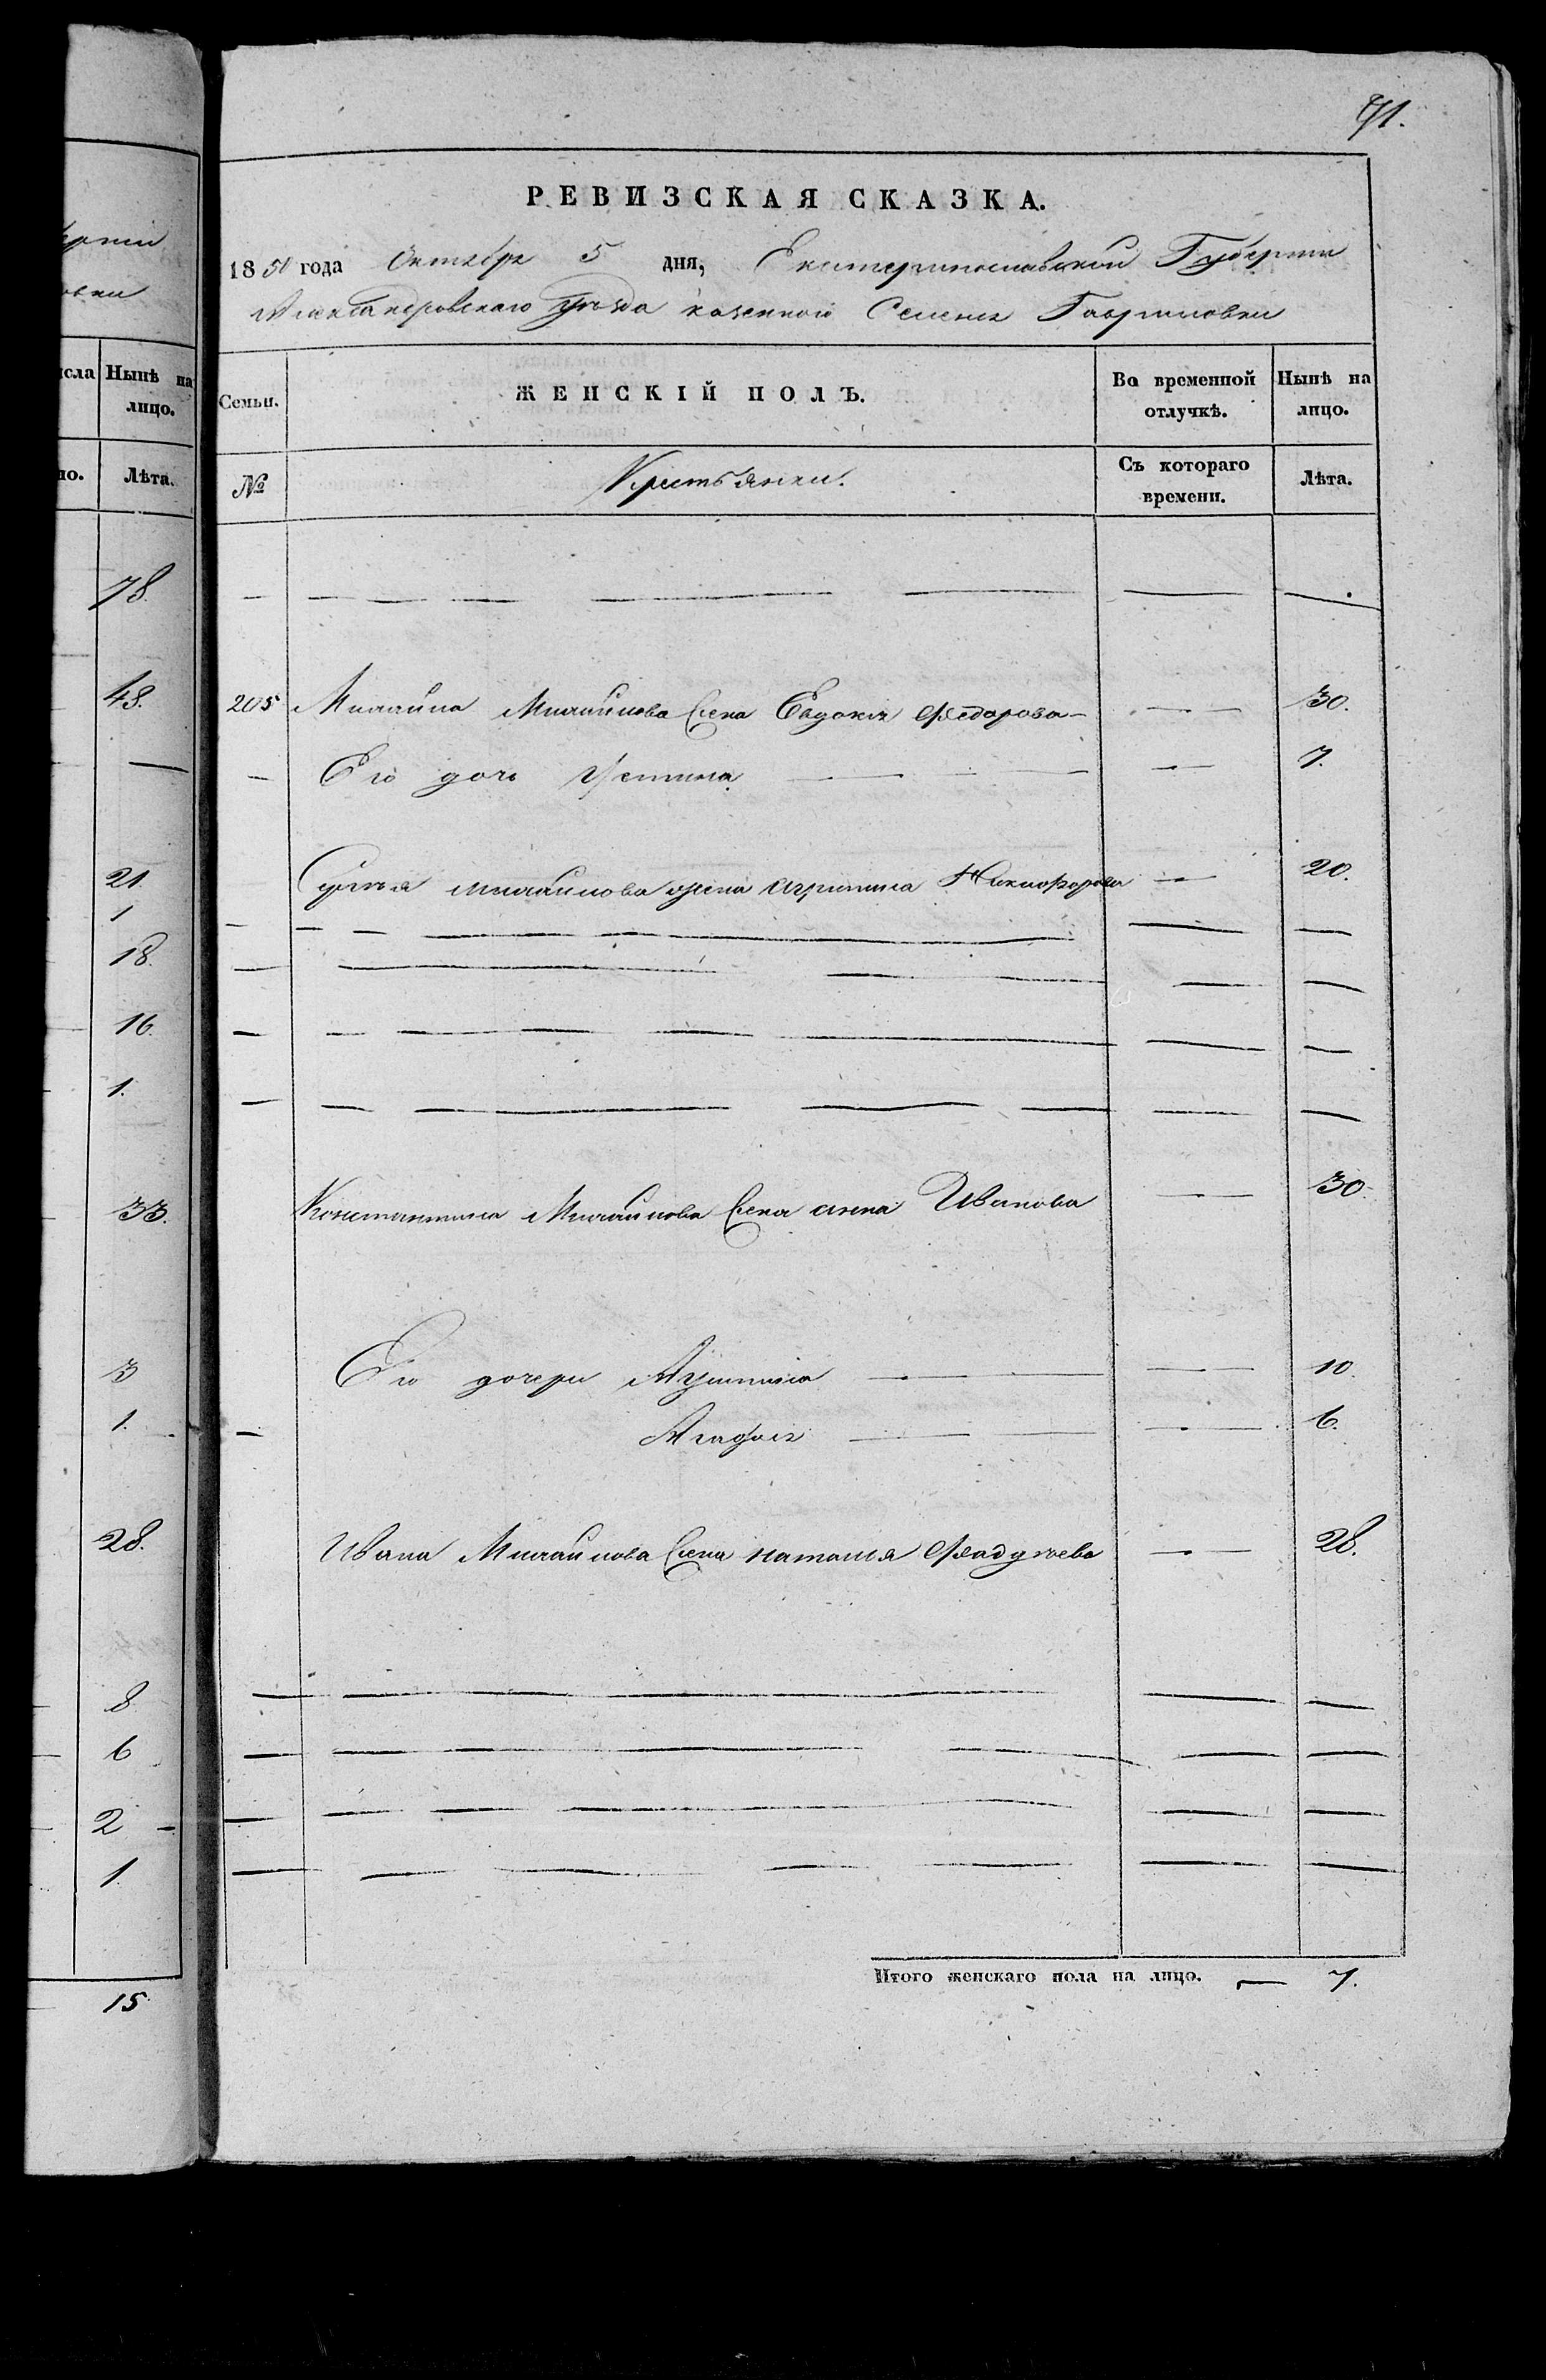 рніи
овки
исла Нынѣ на
лицо.
но. Лѣта.
78.
48.
21.
1
18.
16.
1.
33.
3
1.
28.
8
6
2
1
15
71.
РЕВИЗСКАЯ СКАЗКА.
1850 года Октября 5 дня, Екатеринославской Губерніи
Александровскаго уѣзда казенного Селенія Гавриловки
Семьи. ЖЕНСКІЙ ПОЛЪ. Во временной отлучкѣ. Нынѣ на лицо.
№ Крестьянки. Съ котораго времени. Лѣта.
205 Михайлова жена Евдокия Федорова 30.
Его дочь Устина 7.
Михайлова жена Агрипина Никифорова 20.
Константина Михайлова жена анна Иванова 30.
Его дочери 10.
6.
Ивана Михайлова жена наталия Фадѣева 28.
Итого женскаго пола на лицо. 7.